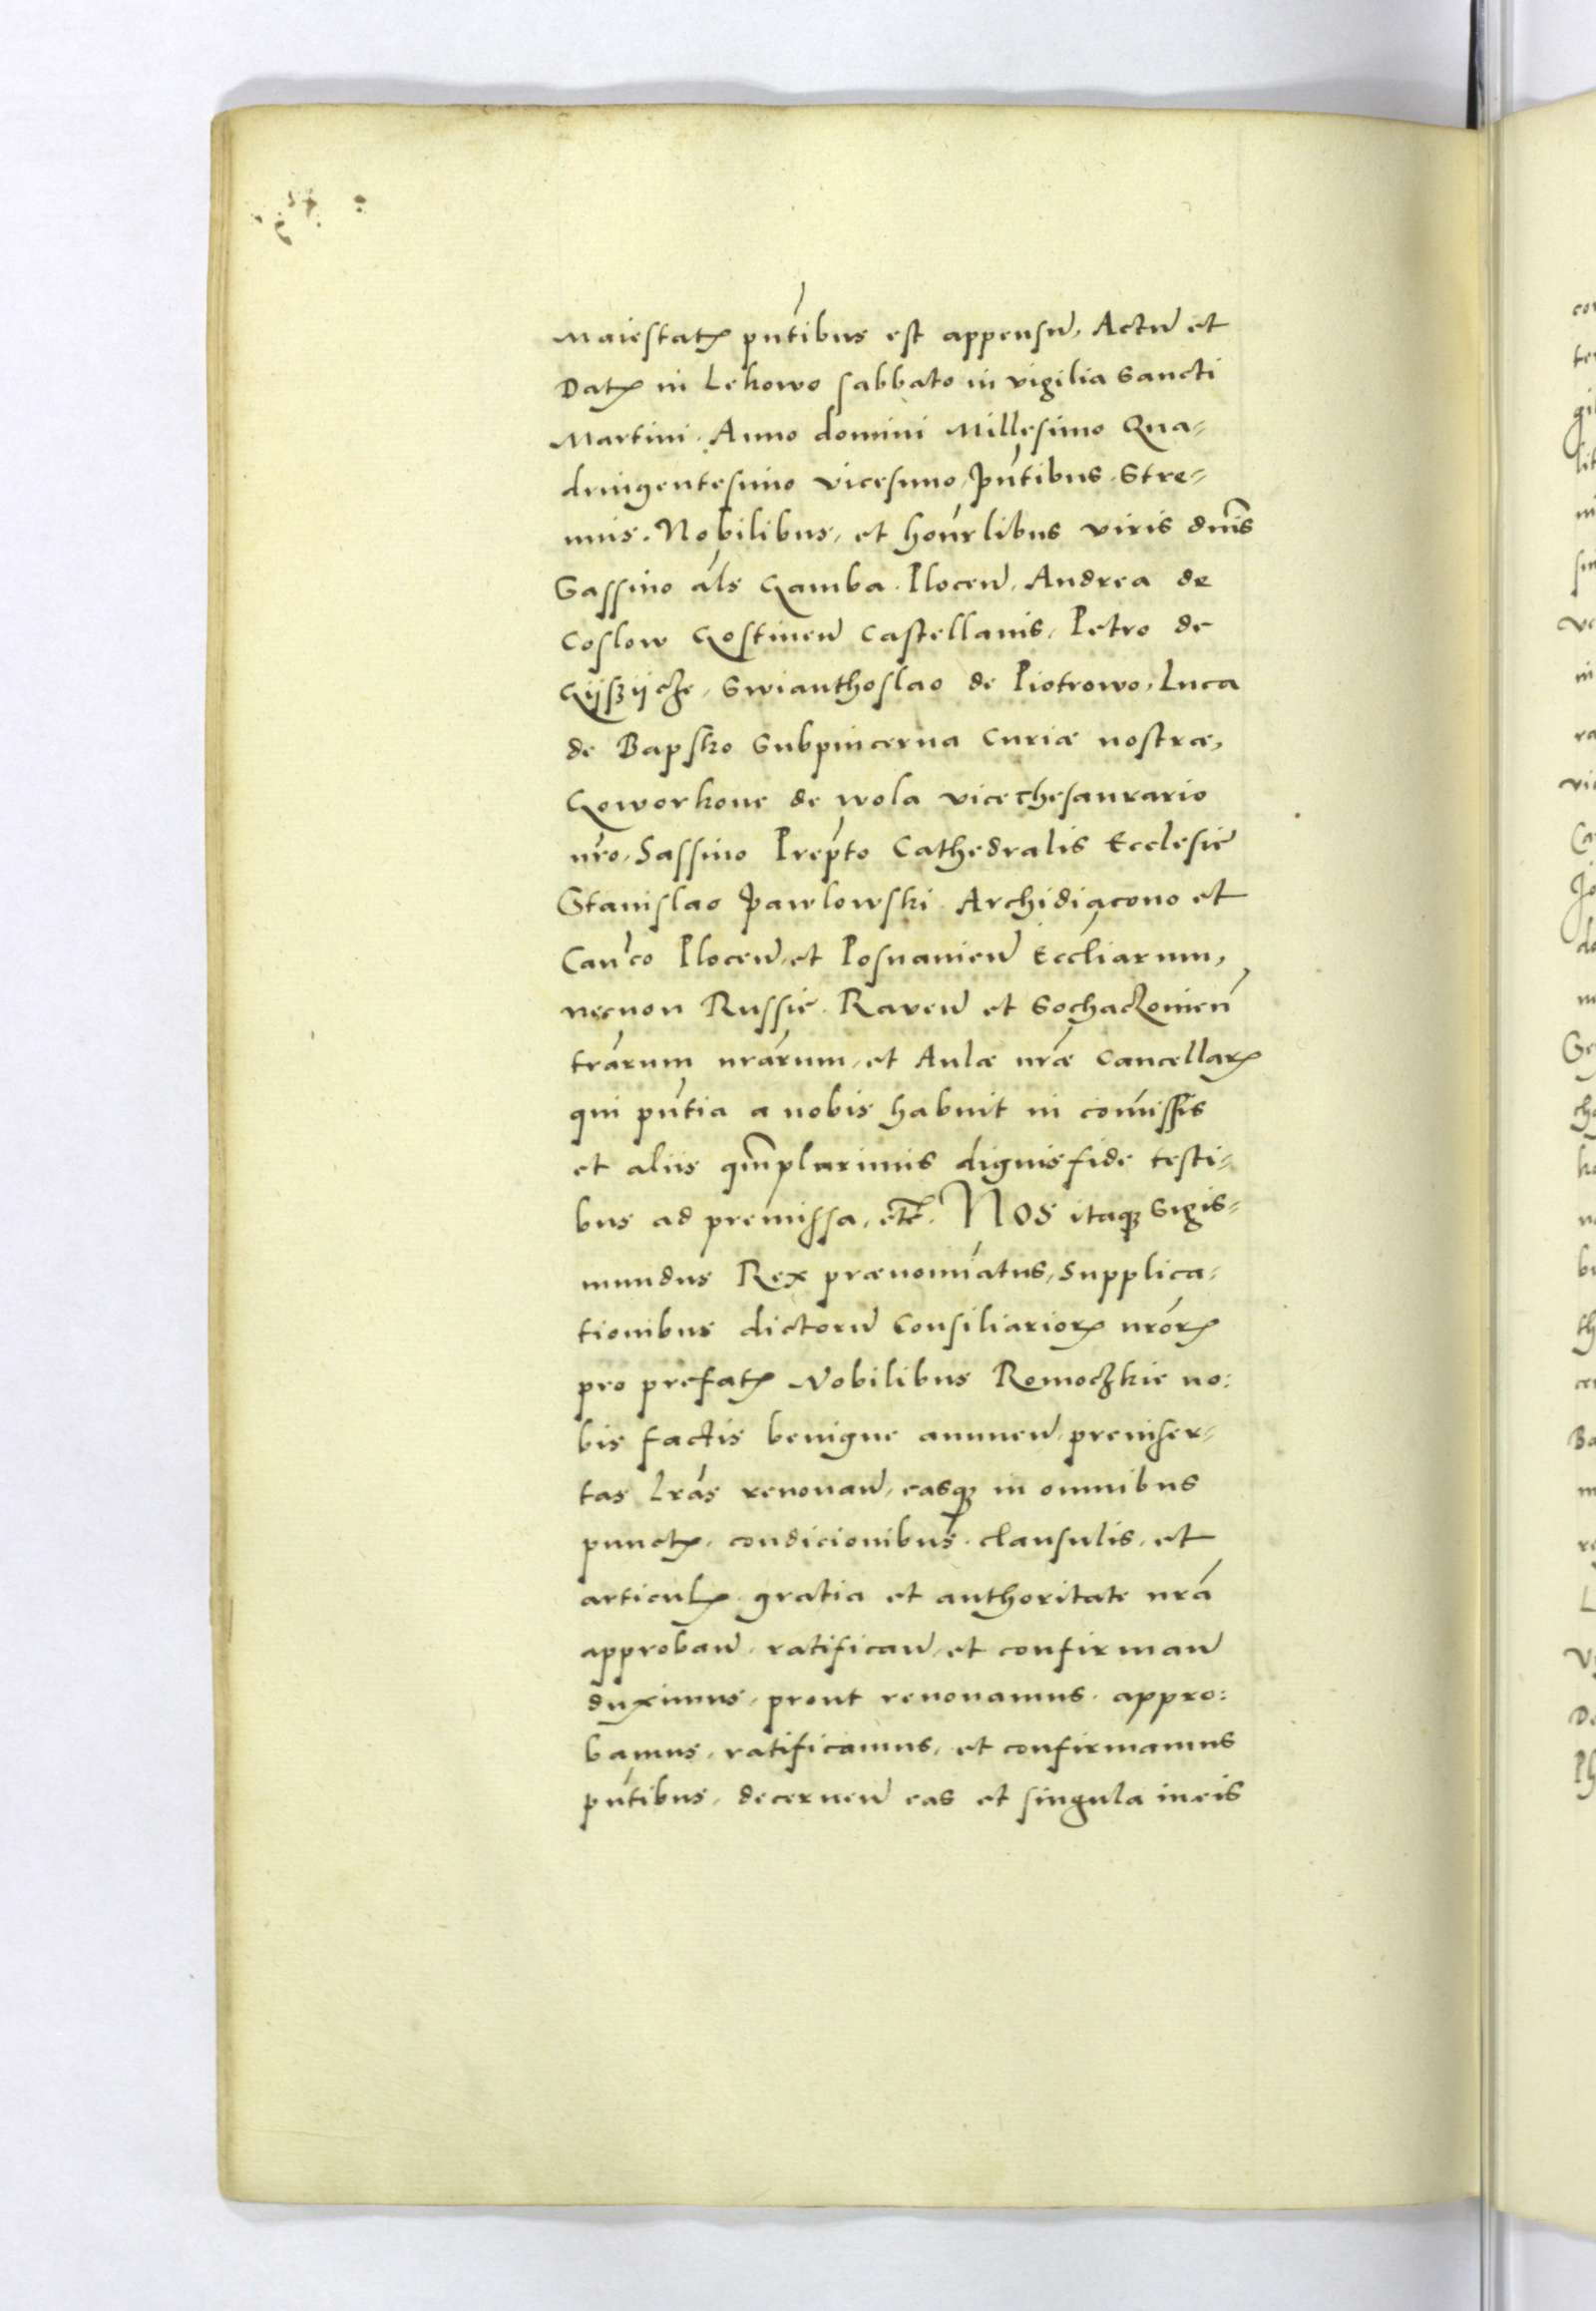 Maiestatꝭ pn̄tibus est appensũ, Actũ et
Datꝭ in Lekowo sabbato in vigilia Sancti
Martini. Anno domini Millesimo Qua-
dringentesimo vicesimo, pn̄tibus. Stre-
nuis. Nobilibus, et honr̄libus viris dn̄is
Sassino al̄s Gamba. Plocen̄. Andrea de
Coslow Gostinen̄ Castellanis, Petro de
Gijszijcze, Swianthoslao de Piotrowo, Luca
de Bapsko Subpincerna Curiæ nostræ,
Goworkone de wola vicethesaurario
nr̄o, Sassino Prep̄to Cathedralis Ecclesie
Stanislao Pawlowski Archidiacono et
Can̄co Plocen̄, et Posnanien̄ Eccl̄iarum,
necnon Russie. Raven̄ et Sochaczonien̄
tr̄arum nr̄arum, et Aulæ nr̄æ Cancellarꝭ
qui pn̄tia a nobis habuit in com̄issis
et aliis qm̄plurimis dignis fide testi-
bus ad premissa, etc̄. Nos itaqꝫ Sigis-
mundus Rex prænomīatus, Supplica-
tionibus dictorũ Consiliariorꝭ nr̄orꝭ
pro prefatꝭ Nobilibus Romoczkie no:
bis factis benigne annuen̄ preinser-
tas Lr̄as renouan̄, easqꝫ in omnibus
punctꝭ. condicionibus. clausulis, et
articulꝭ gratia et authoritate nr̄a
approban̄. ratifican̄, et confirman̄
duximus, prout renouamus. appro:
bamus, ratificamus, et confirmamus
pn̄tibus, decernen̄ eas et singula in eis